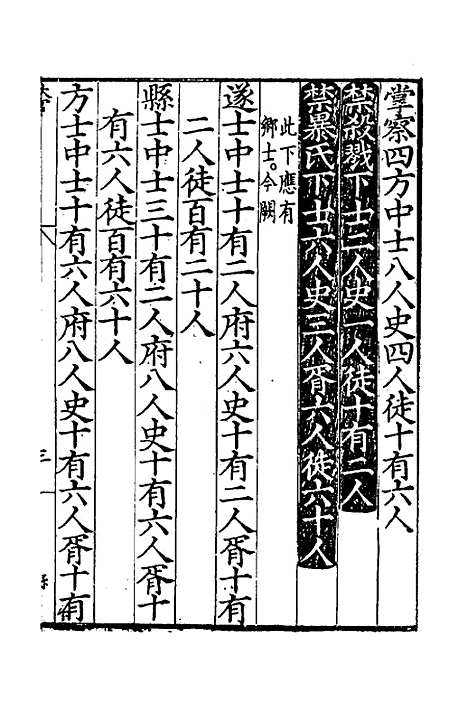 掌察四方中士八人史四人徒十有六人
禁殺戮下士二人史一人徒十有二人
禁暴氏下士六人史三人胥六人徒六十人
此下應有
鄉士。今闕
遂士中士十有二人府六人史十有二人胥十有
二人徒百有二十人
縣士中士三十有二人府八人史十有六人胥十
有六人徒百有六十人
方士中士十有六人府八人史十有六人胥十有
三